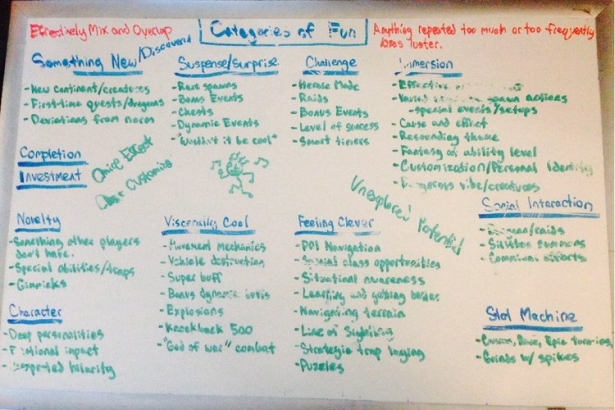 Effectively Mix and Overlap
Categories of Fun
Anything repeated too much or too frequently
loses luster.
Something New/Discovery
- New continent/creatures
- First-time quests/dungeons
- Deviations from norm
Suspense/Surprise
- Rare spawns
- Bonus Events
- Chests
- Dynamic Events
- "Wouldn't it be cool"
Challenge
- Heroic Mode
- Raids
- Bonus Events
- Level of success
- Smart timers
Immersion
- Effective
- Varied spawn actions
- special events/setups
- Cause and effect
- Resounding theme
- Fantasy of ability level
- Customization/Personal Identity
- Dangerous vibe/creatures
Completion
Investment
Choice Effect
User Customize
Unexplored Potential
Novelty
- Something other players
don't have.
- Special abilities/
- Gimmicks
Viscerally Cool
- Movement Mechanics
- Vehicle destruction
- Super buff
- Bonus dynamic
- Explosions
- Knockback 500
- "God of war" combat
Feeling Clever
- POI Navigation
- Special class opportunities
- Situational awareness
- Learning and getting better
- Navigating terrain
- Line of Sighting
- Strategic trap laying
- Puzzles
Social Interaction
- Dungeons/raids
- Sillitee summons
- Communal efforts
Character
- Deep personalities
- Emotional impact
- Unexpected hilarity
Slot Machine
- Rare, Epic
- Grinds w/ spikes